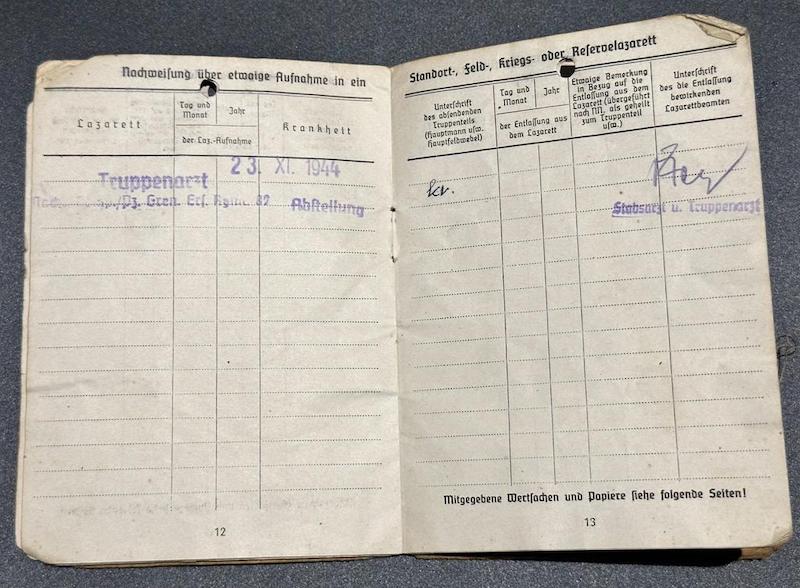 Nachweisung über etwaige Aufnahme in ein
Lazarett
Tag und
Monat
Jahr
der Laz.-Aufnahme
Krankheit
23. XI. 1944
Truppenarzt
/Pz. Gren. Ers. Rgmt. 82
Abstellung
12
Standort-, Feld-, Kriegs- oder Reservelazarett
Unterschrift
des absendenden
Truppenteils
(Hauptmann usw.
Hauptfeldwebel)
Tag und
Monat
Jahr
der Entlassung aus
dem Lazarett
Etwaige Bemerkung
in Bezug auf die
Entlassung aus dem
Lazarett (übergeführt
nach NN, als geheilt
zum Truppenteil
usw.)
Unterschrift
des die Entlassung
bewirkenden
Lazarettbeamten
kv.
Stabsarzt u. Truppenarzt
Mitgegebene Wertsachen und Papiere siehe folgende Seiten!
13